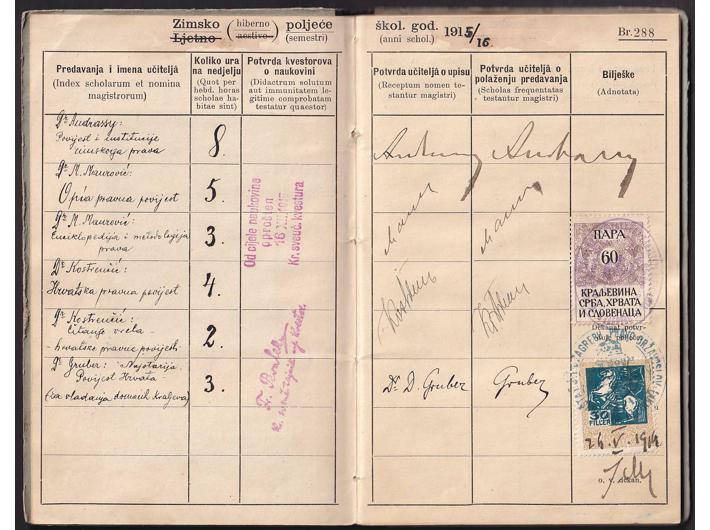 Zimsko (hiberno) poljeće
Ljetno (aestivo) (semestri)
škol. god. 1915/16
(anni schol.)
Br. 288
Predavanja i imena učitelja
(Index scholarum et nomina
magistrorum)
Koliko ura
na nedjelju
(Quot per
hebd. horas
scholae ha-
bitae sint)
Potvrda kvestorova
o naukovini
(Didactrum solutum
aut immunitatem le-
gitime comprobatam
testatur quaestor)
Potvrda učitelja o upisu
(Receptum nomen te-
stantur magistri)
Potvrda učitelja o
polaženju predavanja
(Scholas frequentatas
testantur magistri)
Bilješke
(Adnotata)
Dr Andrassy:
Povijest i institucije
rimskoga prava
8.
Dr M. Maurović:
Opća pravna povijest
5.
Dr M. Maurović:
Enciklopedija i metodologija
prava
3.
Dr Kostrenčić:
Hrvatska pravna povijest
4.
Dr Kostrenčić:
čitanje vrela
hrvatske pravne povijesti
2.
Dr Gruber: Najstarija
Povijest Hrvata
(za vladanja domaćih kraljeva)
3.
Od cijele naukovine
oprošten
Kr. sveuč. kvestura
Dr. D. Gruber
Gruber
ПАРА
60
КРАЉЕВИНА
СРБА, ХРВАТА
И СЛОВЕНАЦА
Dekanat potvr-
30
FILLER
26. V. 1916
o. v. dekan.